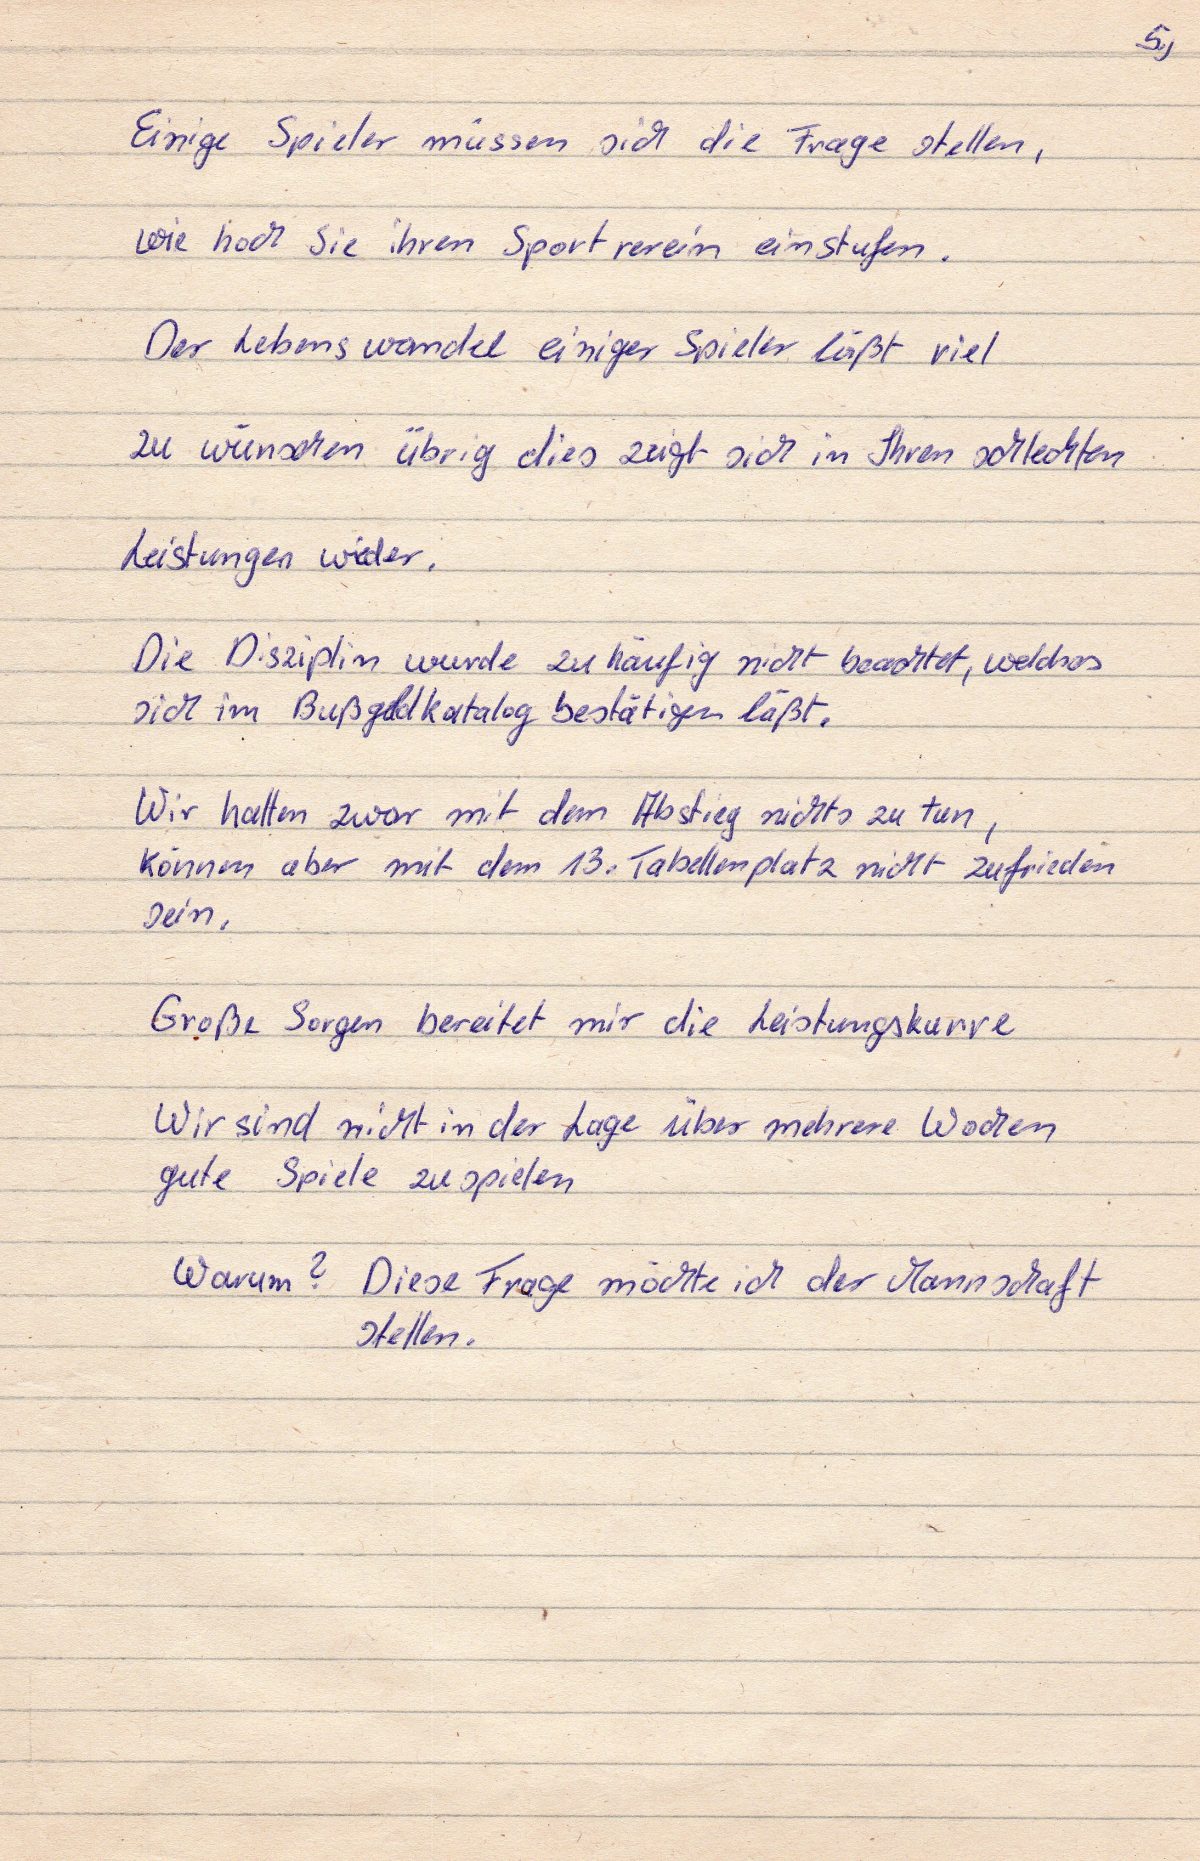 5,
Einige Spieler müssen sich die Frage stellen,
wie hoch Sie ihren Sportverein einstufen.
Der Lebenswandel einiger Spieler läßt viel
zu wünschen übrig dies zeigt sich in Ihren schlechten
Leistungen wieder.
Die Disziplin wurde zu häufig nicht beachtet, welches
sich im Bußgeldkatalog bestätigen läßt.
Wir hatten zwar mit dem Abstieg nichts zu tun,
können aber mit dem 13. Tabellenplatz nicht zufrieden
sein.
Große Sorgen bereitet mir die Leistungskurve
Wir sind nicht in der Lage über mehrere Wochen
gute Spiele zu spielen
Warum? Diese Frage möchte ich der Mannschaft
stellen.